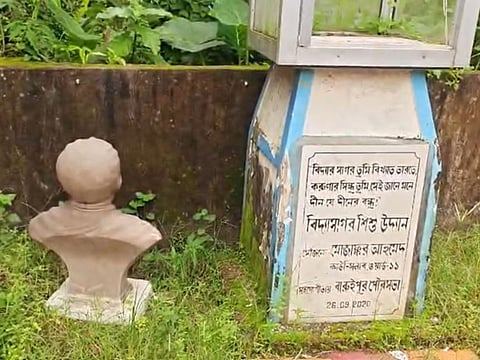 "বিদ্যার সাগর তুমি বিখ্যাত ভারতে
করুণার সিন্ধু তুমি সেই জানে মনে
দীন যে দীনের বন্ধু"
বিদ্যাসাগর শিশু উদ্যান
মোজাফ্ফর আহমেদ
কাউন্সিলার, ওয়ার্ড-১১
বারুইপুর পৌরসভা
26.09.2020